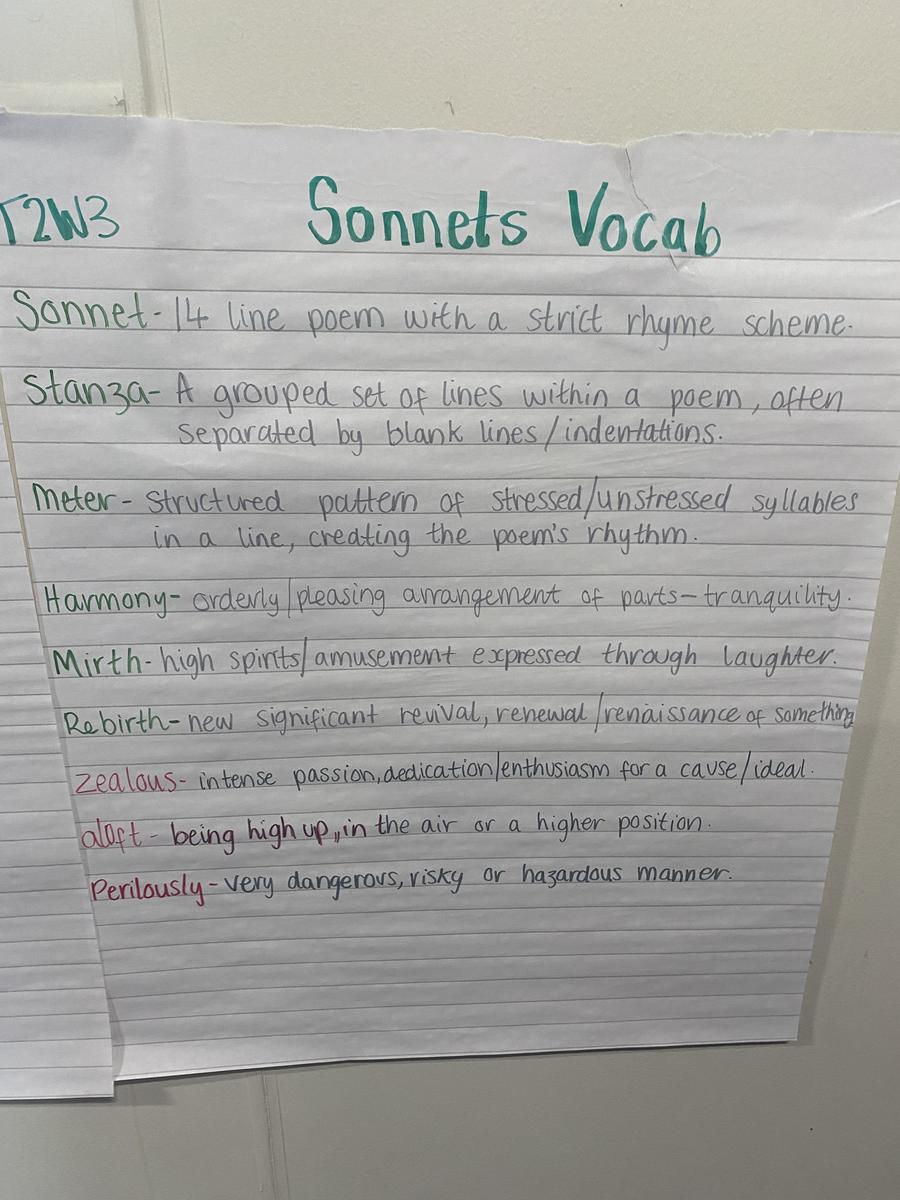 T2W3 Sonnets Vocab
Sonnet - 14 line poem with a strict rhyme scheme.
Stanza - A grouped set of lines within a poem, often
separated by blank lines/indentations.
Meter - structured pattern of stressed/unstressed syllables
in a line, creating the poem's rhythm.
Harmony - orderly/pleasing arrangement of parts - tranquility.
Mirth - high spirits/amusement expressed through laughter.
Rebirth - new significant revival, renewal/renaissance of something
zealous - intense passion, dedication/enthusiasm for a cause/ideal.
aloft - being high up,, in the air or a higher position.
Perilously - very dangerous, risky or hazardous manner.